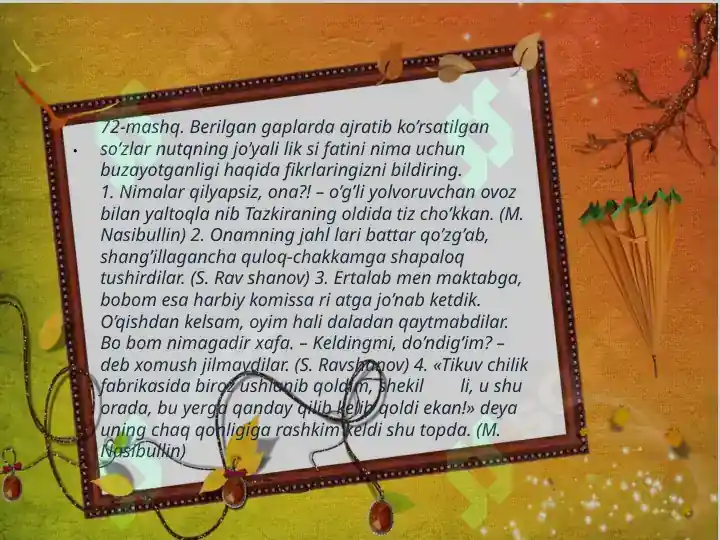 72-mashq. Berilgan gaplarda ajratib ko’rsatilgan
• so’zlar nutqning jo’yali lik si fatini nima uchun
buzayotganligi haqida fikrlaringizni bildiring.
1. Nimalar qilyapsiz, ona?! – o’g’li yolvoruvchan ovoz
bilan yaltoqla nib Tazkiraning oldida tiz cho’kkan. (M.
Nasibullin) 2. Onamning jahl lari battar qo’zg’ab,
shang’illagancha quloq-chakkamga shapaloq
tushirdilar. (S. Rav shanov) 3. Ertalab men maktabga,
bobom esa harbiy komissa ri atga jo’nab ketdik.
O’qishdan kelsam, oyim hali daladan qaytmabdilar.
Bo bom nimagadir xafa. – Keldingmi, do’ndig’im? –
deb xomush jilmaydilar. (S. Ravshanov) 4. «Tikuv chilik
fabrikasida biroz ushlanib qoldim, shekil li, u shu
orada, bu yerga qanday qilib kelib qoldi ekan!» deya
uning chaq qonligiga rashkim keldi shu topda. (M.
Nasibullin)